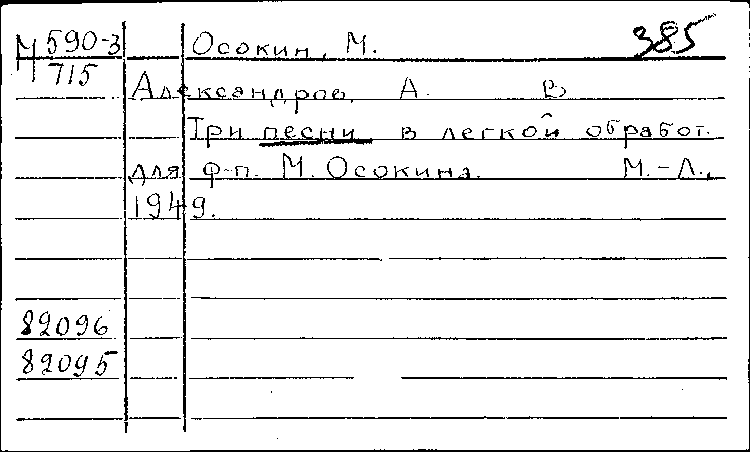 М 590-3 Осокин, М. 385
715
Александров, А. В
Три песни в легкой обработ.
для ф-п. М. Осокина. М.-Л.,
1949.
82096
82095